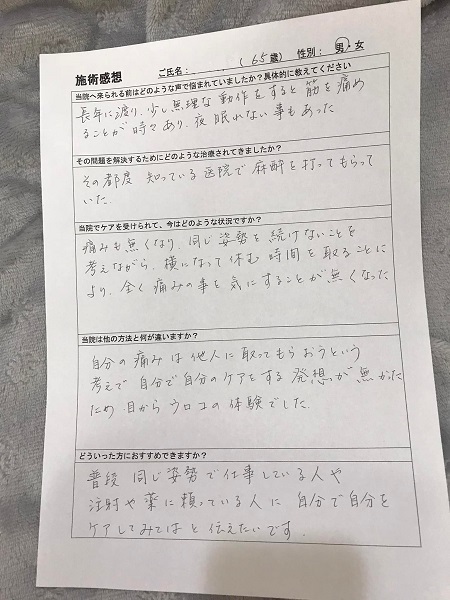 施術感想
ご氏名： （65歳） 性別： 男・女
当院へ来られる前はどのような声で悩まれていましたか？具体的に教えてください
長年に渡り、少し無理な動作をすると筋を痛め
ることが時々あり、夜眠れない事もあった
その問題を解決するためにどのような治療されてきましたか？
その都度 知っている医院で麻酔を打ってもらって
いた.
当院でケアを受けられて、今はどのような状況ですか？
痛みも無くなり、同じ姿勢を続けないことを
考えながら、横になって休む時間を取ることに
より、全く痛みの事を気にすることが無くなった.
当院は他の方法と何が違いますか？
自分の痛みは他人に取ってもらおうという
考えで自分で自分のケアをする発想が無かった
ため 目からウロコの体験でした.
どういった方におすすめできますか？
普段 同じ姿勢で仕事している人や
注射や薬に頼っている人に 自分で自分を
ケアしてみてはと伝えたいです.